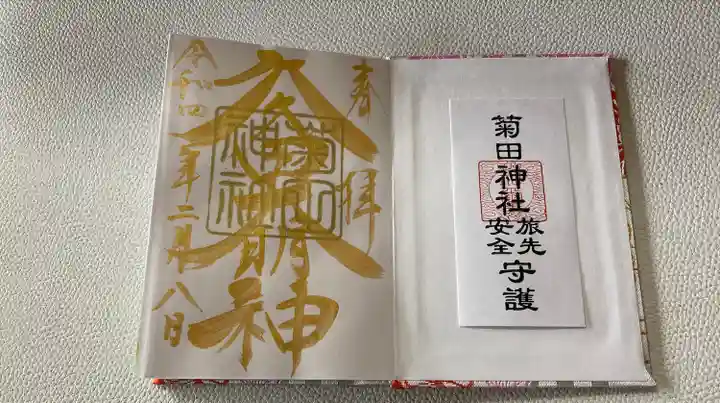 菊田神社
旅先
安全
守護
奉拝
大明神
菊田
神社
令和四年二月八日